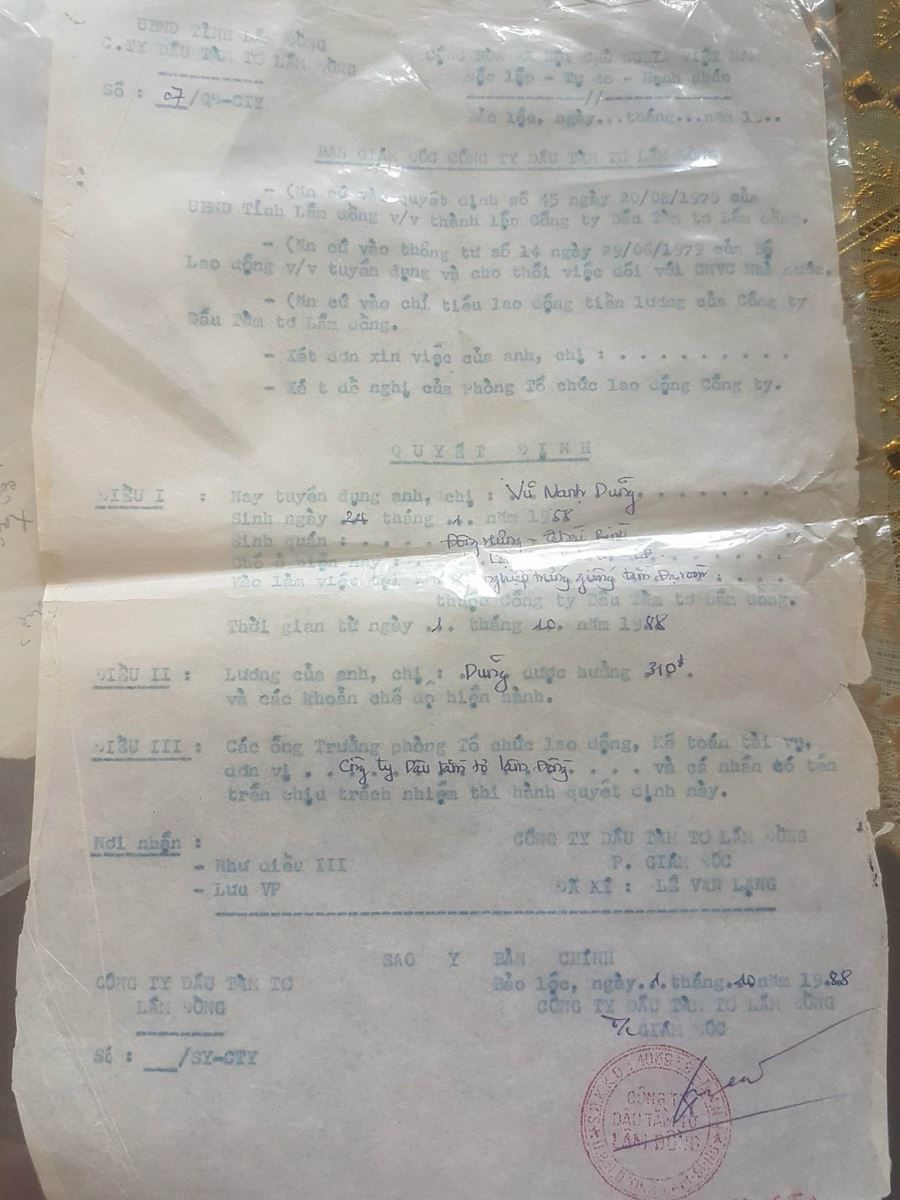 UBND TỈNH LÂM ĐỒNG
C.TY DÂU TẰM TƠ LÂM ĐỒNG
CỘNG HÒA XÃ HỘI CHỦ NGHĨA VIỆT NAM
Độc lập - Tự do - Hạnh phúc
Số : 07/QĐ-CTY
Bảo lộc, ngày...tháng...năm 19..
BAN GIÁM ĐỐC CÔNG TY DÂU TẰM TƠ LÂM ĐỒNG
- (Ăn cứ vào quyết định số 45 ngày 20/08/1979 của
UBND Tỉnh Lâm đồng v/v thành lập Công ty Dâu Tằm tơ Lâm đồng.
- (Ăn cứ vào thông tư số 14 ngày 29/06/1979 của Bộ
Lao động v/v tuyển dụng và cho thôi việc đối với CNVC Nhà nước.
- (Ăn cứ vào chỉ tiêu lao động tiền lương của Công ty
Dâu Tằm tơ Lâm đồng.
- Xét đơn xin việc của anh, chị : . . . . . . . . .
- Xé t đề nghị của phòng Tổ chức lao động Công ty.
QUYẾT ĐỊNH
ĐIỀU I : Nay tuyển dụng anh, chị : Vũ Mạnh Dũng . . . . . . .
Sinh ngày 24 tháng .1. năm 1968
Sinh quán : . . . . Đông Hưng - Thái Bình
Chỗ ở hiện nay : . .
Vào làm việc tại nghiệp trứng giống tằm . . . .
thuộc Công ty Dâu Tằm tơ Lâm đồng.
Thời gian từ ngày .1. tháng 10. năm 1988
ĐIỀU II : Lương của anh, chị : Dũng được hưởng 310đ.
và các khoản chế độ hiện hành.
ĐIỀU III : Các ông Trưởng phòng Tổ chức lao động, Kế toán tài vụ,
đơn vị . . Công ty Dâu tằm tơ Lâm Đồng. . . . và cá nhân có tên
trên chịu trách nhiệm thi hành quyết định này.
Nơi nhận :
- Như điều III
- Lưu VP
CÔNG TY DÂU TẰM TƠ LÂM ĐỒNG
P. GIÁM ĐỐC
ĐÃ KÍ : LÊ VĂN LẠNG
SAO Y BẢN CHÍNH
CÔNG TY DÂU TẰM TƠ
LÂM ĐỒNG
Số : ___/SY-CTY
Bảo lộc, ngày.1.tháng.10năm 1988
CÔNG TY DÂU TẰM TƠ LÂM ĐỒNG
T/L GIÁM ĐỐC
CÔNG TY
DÂU TẰM TƠ
LÂM ĐỒNG